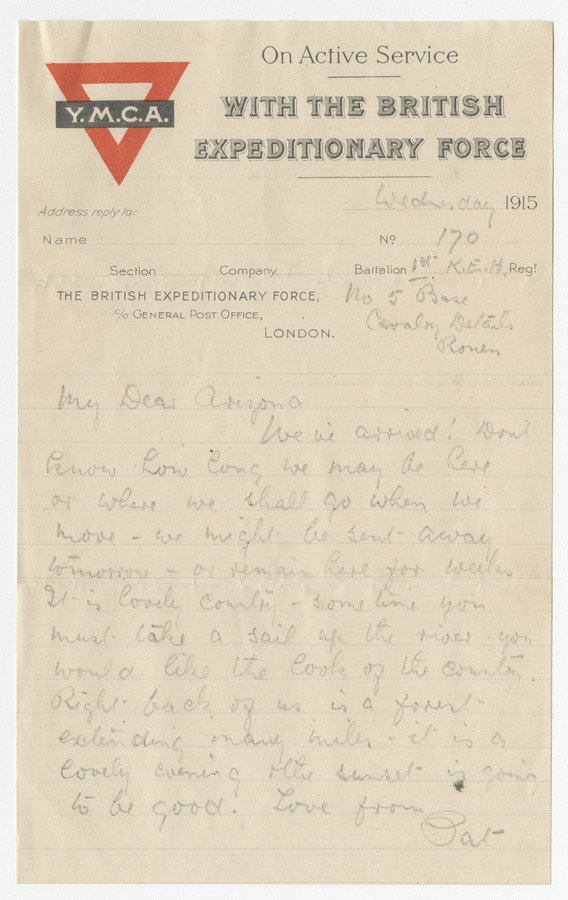 On Active Service
WITH THE BRITISH
EXPEDITIONARY FORCE
Y.M.C.A.
Wednesday 1915
Address reply to:-
Name Nº 170
Section Company Battalion 1st K.E.H. Regt
THE BRITISH EXPEDITIONARY FORCE, No 5 Base
c/o GENERAL POST OFFICE, Cavalry Details
LONDON. Rouen
My Dear Arizona
We've arrived! Don't
know how long we may be here
or where we shall go when we
move - we might be sent away
tomorrow - or remain here for weeks
It is lovely country - some time you
must take a sail up the river - you
would like the look of the country.
Right back of us is a forest
extending many miles - it is a
lovely evening & the sunset is going
to be good. Love from
Pat